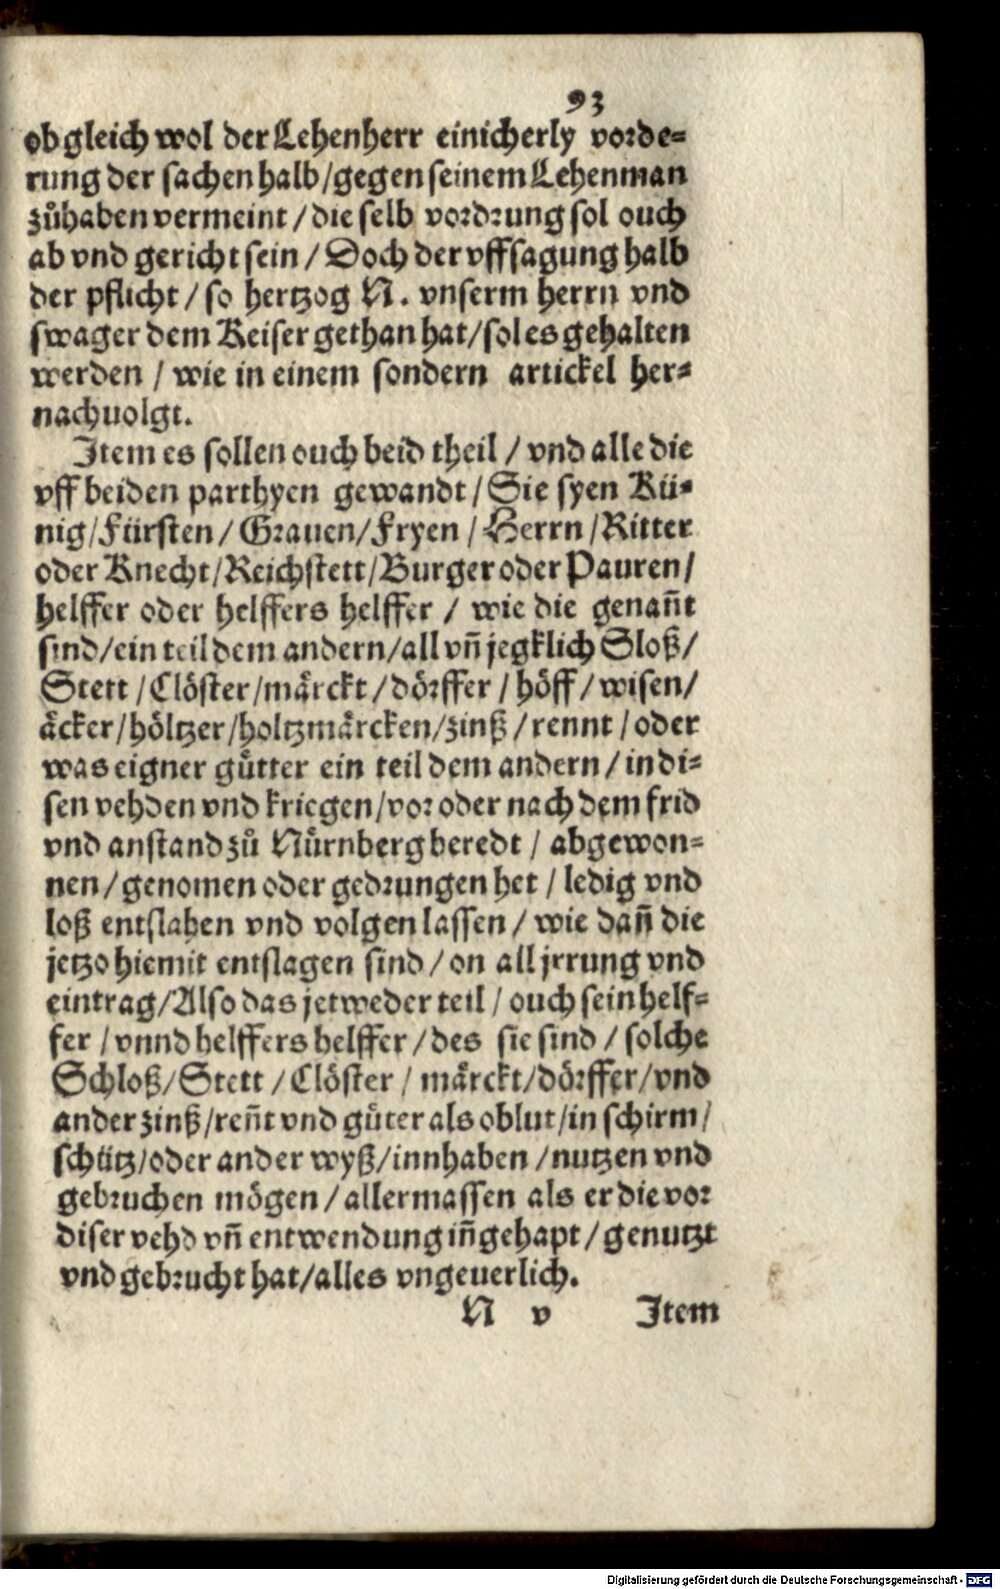 93
ob gleich wol der Lehenherr einicherly vorde-
rung der sachen halb/gegen seinem Lehenman
zůhaben vermeint/die selb vordrung sol ouch
ab vnd gericht sein/Doch der vffsagung halb
der pflicht/so hertzog N. vnserm herrn vnd
swager dem Keiser gethan hat/sol es gehalten
werden/wie in einem sondern artickel her-
nachuolgt.
Item es sollen ouch beid theil/vnd alle die
vff beiden parthyen gewandt/Sie syen Kü-
nig/Fürsten/Grauen/Fryen/Herrn/Ritter
oder Knecht/Reichstett/Burger oder Pauren/
helffer oder helffers helffer/wie die genañt
sind/ein teil dem andern/all vñ jegklich Sloß/
Stett/Clöster/märckt/dörffer/höff/wisen/
äcker/höltzer/holtzmärcken/zinß/rennt/oder
was eigner gütter ein teil dem andern/in di-
sen vehden vnd kriegen/vor oder nach dem frid
vnd anstand zů Nürnberg beredt/abgewon-
nen/genomen oder gedrungen het/ledig vnd
loß entslahen vnd volgen lassen/wie dañ die
jetzo hiemit entslagen sind/on all jrrung vnd
eintrag/Also das jetweder teil/ouch sein helf-
fer/vnnd helffers helffer/des sie sind/solche
Schloß/Stett/Clöster/märckt/dörffer/vnd
ander zinß/reñt vnd güter als oblut/in schirm/
schütz/oder ander wyß/innhaben/nutzen vnd
gebruchen mögen/allermassen als er die vor
diser vehd vñ entwendung iñgehapt/genutzt
vnd gebrucht hat/alles vngeuerlich.
N v Item
Digitalisierung gefördert durch die Deutsche Forschungsgemeinschaft - DFG